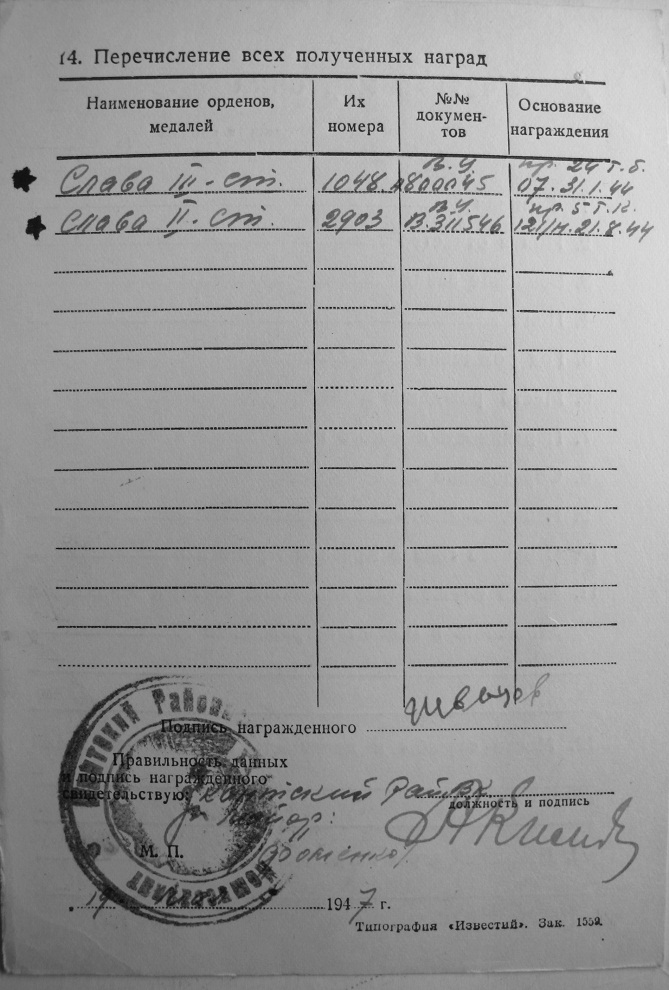 14. Перечисление всех полученных наград
Наименование орденов, медалей
Их номера
№№ докумен-тов
Основание награждения
Слава III-ст. 1048. в.у. 800045 пр. 24 г.б. 07. 31.1.44
Слава II-ст. 2903 в.у. В.311546 пр. 5 121/н. 21.8.44
Подпись награжденного
Правильность данных
и подпись награжденного
свидетельствую: Кантский РайВК
должность и подпись
майор:
М. П.
19 1947 г.
Типография «Известий». Зак. 1559.